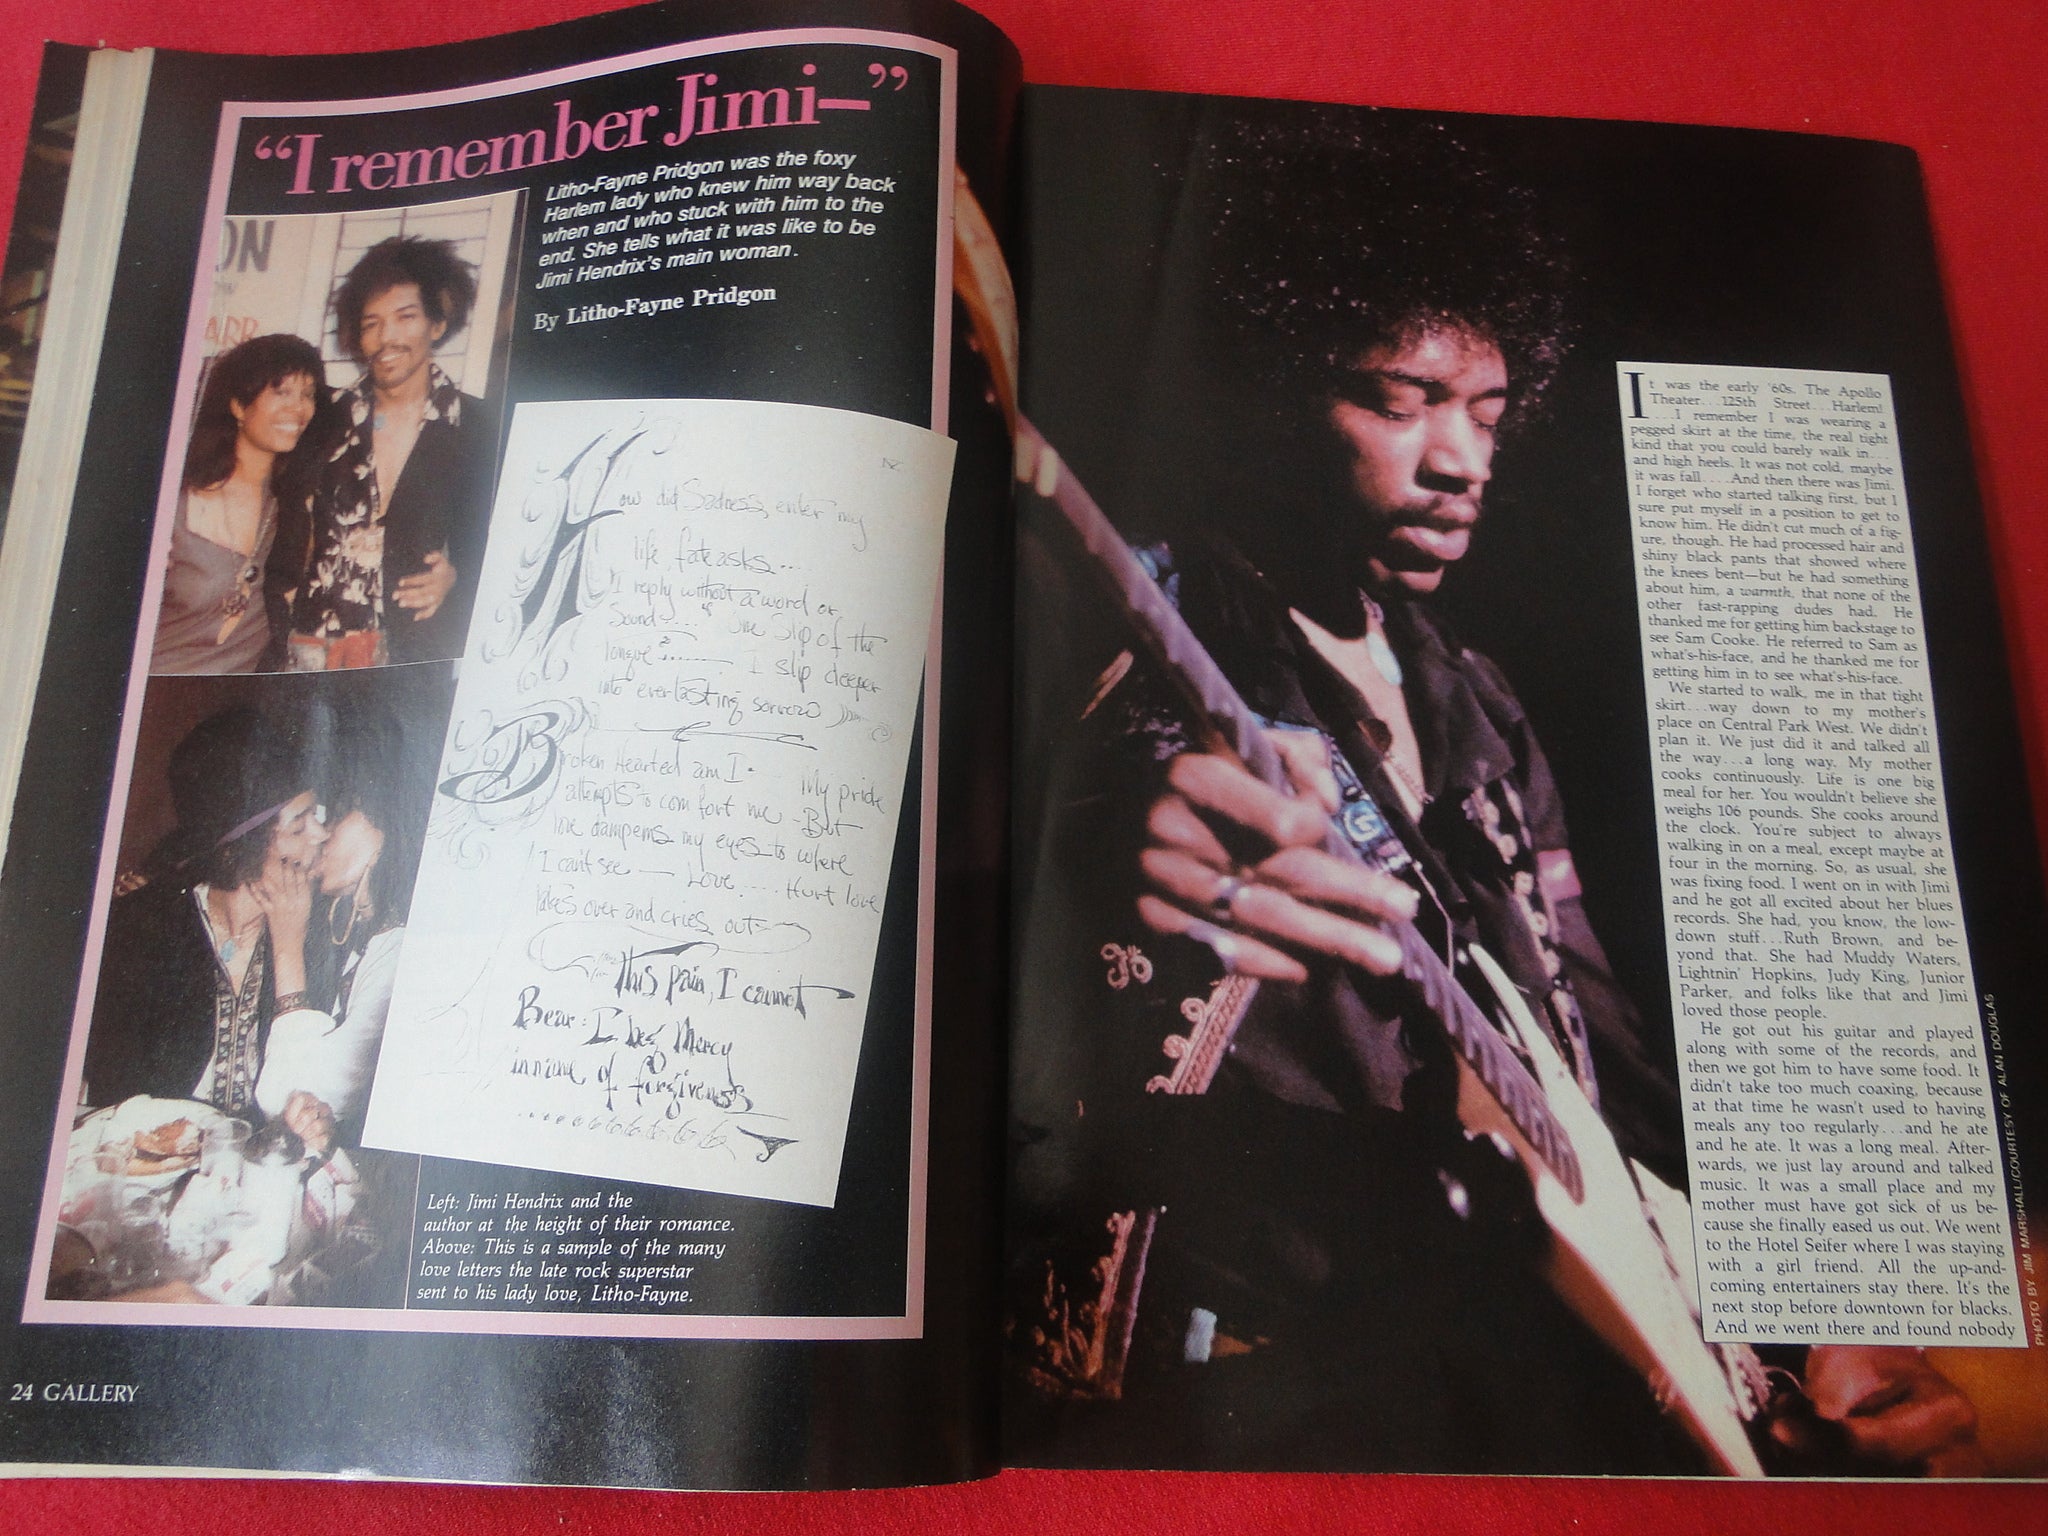 “I remember Jimi—”
Litho-Fayne Pridgon was the foxy
Harlem lady who knew him way back
when and who stuck with him to the
end. She tells what it was like to be
Jimi Hendrix's main woman.
By Litho-Fayne Pridgon
ON
How did Sadness enter my
life, fate asks....
I reply without a word or
Sound.... One Slip of the
tongue...... I slip deeper
into everlasting sorrow
Broken Hearted am I. My pride
attempts to comfort me - But
love dampens my eyes to where
I can't see — Love..... Hurt love
takes over and cries out
This pain, I cannot
Bear: I beg Mercy
in name of forgiveness
Left: Jimi Hendrix and the
author at the height of their romance.
Above: This is a sample of the many
love letters the late rock superstar
sent to his lady love, Litho-Fayne.
24 GALLERY
It was the early '60s. The Apollo
Theater...125th Street...Harlem!
....I remember I was wearing a
pegged skirt at the time, the real tight
kind that you could barely walk in...
and high heels. It was not cold, maybe
it was fall....And then there was Jimi.
I forget who started talking first, but I
sure put myself in a position to get to
know him. He didn't cut much of a fig-
ure, though. He had processed hair and
shiny black pants that showed where
the knees bent—but he had something
about him, a warmth, that none of the
other fast-rapping dudes had. He
thanked me for getting him backstage to
see Sam Cooke. He referred to Sam as
what's-his-face, and he thanked me for
getting him in to see what's-his-face.
We started to walk, me in that tight
skirt...way down to my mother's
place on Central Park West. We didn't
plan it. We just did it and talked all
the way...a long way. My mother
cooks continuously. Life is one big
meal for her. You wouldn't believe she
weighs 106 pounds. She cooks around
the clock. You're subject to always
walking in on a meal, except maybe at
four in the morning. So, as usual, she
was fixing food. I went on in with Jimi
and he got all excited about her blues
records. She had, you know, the low-
down stuff...Ruth Brown, and be-
yond that. She had Muddy Waters,
Lightnin' Hopkins, Judy King, Junior
Parker, and folks like that and Jimi
loved those people.
He got out his guitar and played
along with some of the records, and
then we got him to have some food. It
didn't take too much coaxing, because
at that time he wasn't used to having
meals any too regularly...and he ate
and he ate. It was a long meal. After-
wards, we just lay around and talked
music. It was a small place and my
mother must have got sick of us be-
cause she finally eased us out. We went
to the Hotel Seifer where I was staying
with a girl friend. All the up-and-
coming entertainers stay there. It's the
next stop before downtown for blacks.
And we went there and found nobody
PHOTO BY JIM MARSHALL/COURTESY OF ALAN DOUGLAS